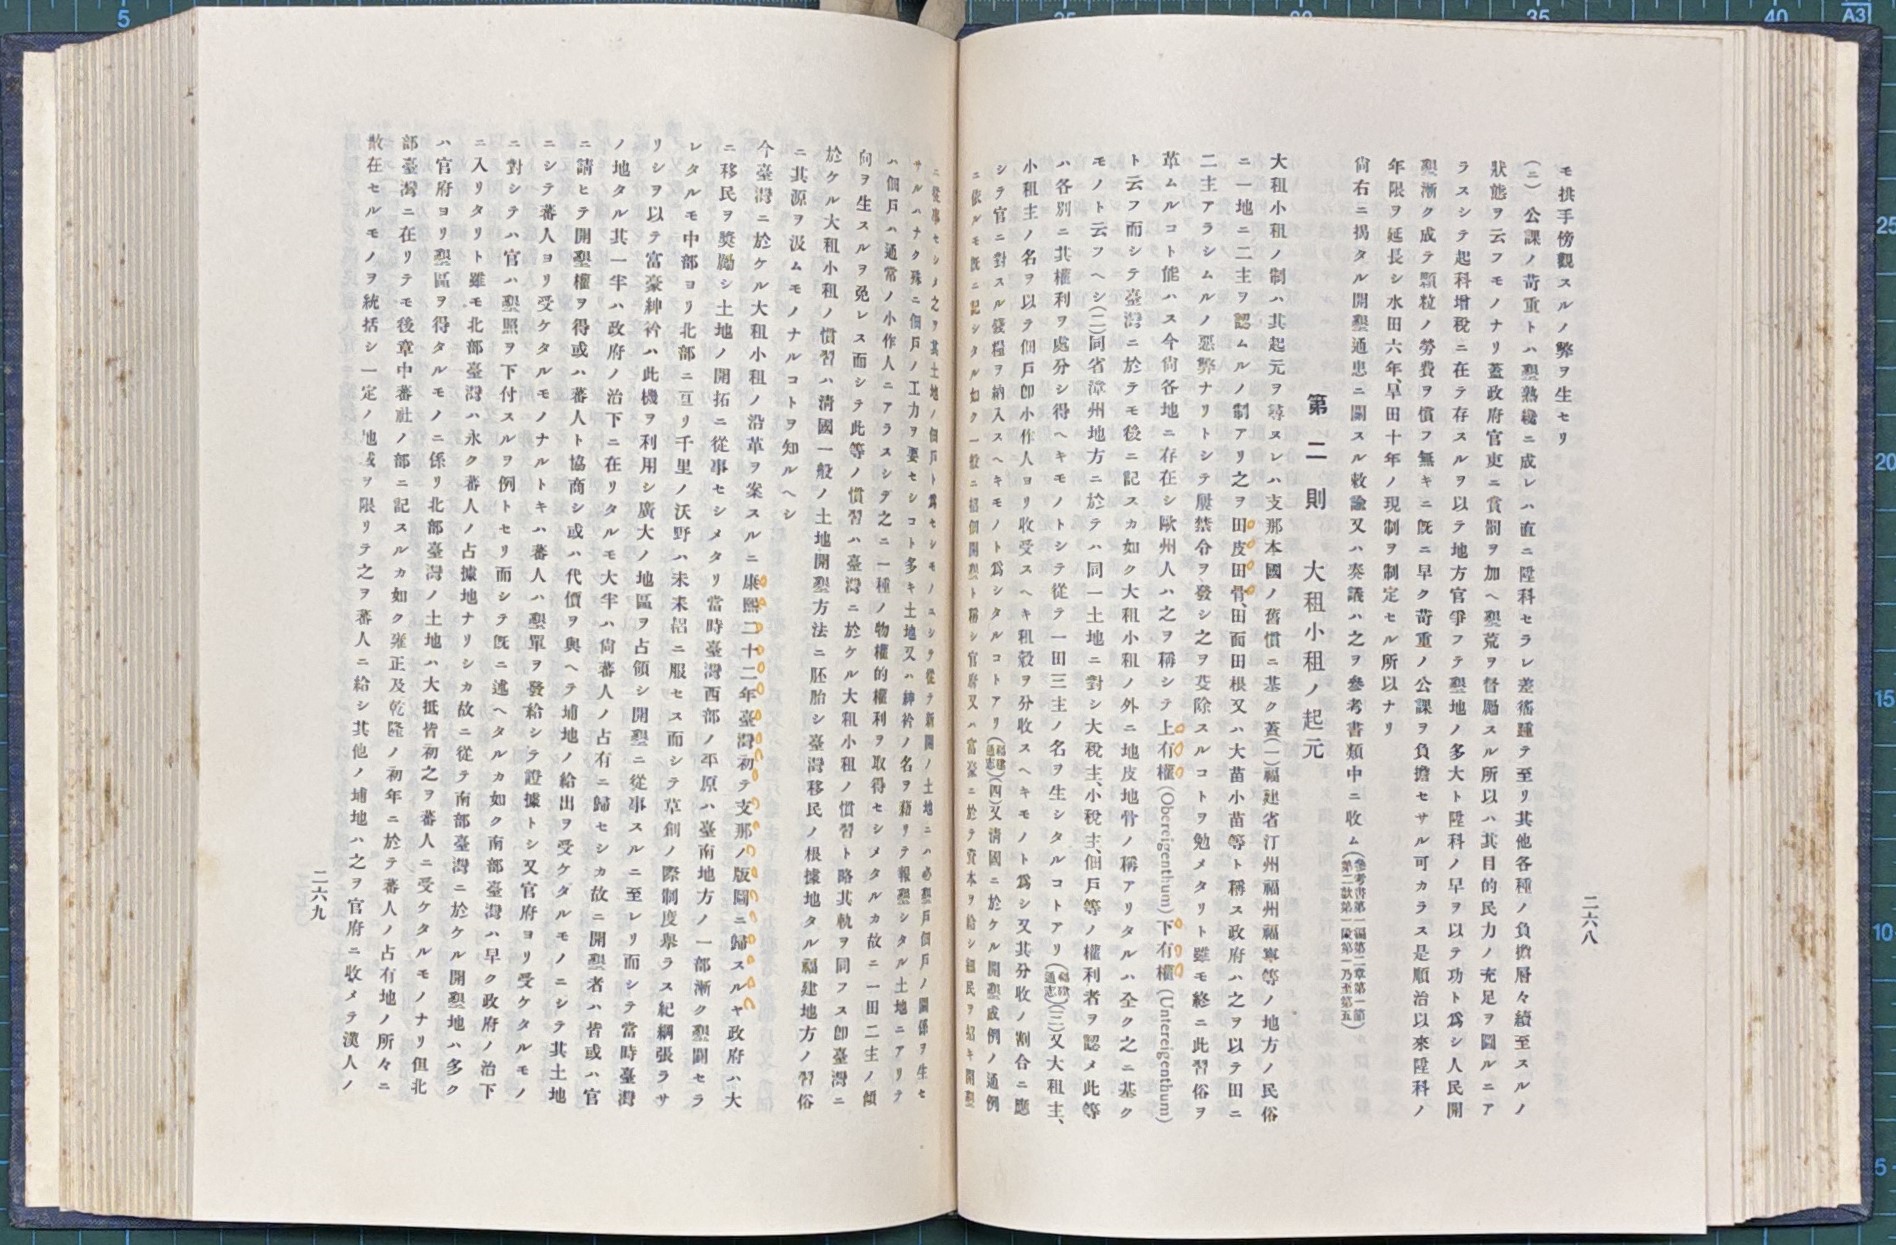 二六八
モ拱手傍觀スルノ弊ヲ生セリ
(二)公課ノ苛重トハ墾熟纔ニ成レハ直ニ陞科セラレ差徭踵テ至リ其他各種ノ負擔層々續至スルノ
狀態ヲ云フモノナリ蓋政府官吏ニ賞罰ヲ加ヘ墾荒ヲ督勵スル所以ハ其目的民力ノ充足ヲ圖ルニア
ラスシテ起科增稅ニ在テ存スルヲ以テ地方官爭フテ墾地ノ多大ト陞科ノ早ヲ以テ功ト爲シ人民開
墾漸ク成テ顆粒ノ勞費ヲ償フ無キニ旣ニ早ク苛重ノ公課ヲ負擔セサル可カラス是順治以來陞科ノ
年限ヲ延長シ水田六年、旱田十年ノ現制ヲ制定セル所以ナリ
尙右ニ揭タル開墾通患ニ關スル敕諭又ハ奏議ハ之ヲ參考書類中ニ收ム(參考書第一編第二章第一節第二款第一項第一乃至第五)
第二則　大租小租ノ起元
大租小租ノ制ハ其起元ヲ尋ヌレハ支那本國ノ舊慣ニ基ク蓋(一)福建省汀州福州福寧等ノ地方ノ民俗
ニ一地ニ二主ヲ認ムルノ制アリ之ヲ田皮田骨、田面田根又ハ大苗小苗等ト稱ス政府ハ之ヲ以テ田ニ
二主アラシムルノ惡弊ナリトシテ屢禁令ヲ發シ之ヲ芟除スルコトヲ勉メタリト雖モ終ニ此習俗ヲ
革ムルコト能ハス今尙各地ニ存在シ歐州人ハ之ヲ稱シテ上有權(Obereigenthum)下有權(Untereigenthum)
ト云フ而シテ臺灣ニ於テモ後ニ記スカ如ク大租小租ノ外ニ地皮地骨ノ稱アリタルハ全ク之ニ基ク
モノト云フヘシ(二)同省漳州地方ニ於テハ同一土地ニ對シ大稅主、小稅主、佃戶等ノ權利者ヲ認メ此等
ハ各別ニ其權利ヲ處分シ得ヘキモノトシテ從テ一田三主ノ名ヲ生シタルコトアリ(福建通志)(三)又大租主、
小租主ノ名ヲ以テ佃戶卽小作人ヨリ收受スヘキ租穀ヲ分收スヘキモノト爲シ又其分收ノ割合ニ應
シテ官ニ對スル發糧ヲ納入スヘキモノト爲シタルコトアリ(福建通志)(四)又淸國ニ於ケル開墾成例ノ通例
ニ依ルモ旣ニ記シタル如ク一般ニ招佃開墾ト稱シ官府又ハ富豪ニ於テ資本ヲ給シ細民ヲ招キ開墾
ニ從事セシメ之ヲ其土地ノ佃戶ト爲セシモノニシテ從テ新開ノ土地ニハ必墾戶佃戶ノ關係ヲ生セ
サルハナク殊ニ佃戶ノ工力ヲ要セシコト多キ土地又ハ紳衿ノ名ヲ藉リテ報墾シタル土地ニアリテ
ハ佃戶ハ通常ノ小作人ニアラスシテ之ニ一種ノ物權的權利ヲ取得セシメタルカ故ニ一田二主ノ傾
向ヲ生スルヲ免レス而シテ此等ノ慣習ハ臺灣ニ於ケル大租小租ノ慣習ト略其軌ヲ同フス卽臺灣ニ
於ケル大租小租ノ慣習ハ淸國一般ノ土地開墾方法ニ胚胎シ臺灣移民ノ根據地タル福建地方ノ習俗
ニ其源ヲ汲ムモノナルコトヲ知ルヘシ
今臺灣ニ於ケル大租小租ノ沿革ヲ案スルニ康熙二十二年臺灣初テ支那ノ版圖ニ歸スルヤ政府ハ大
ニ移民ヲ奬勵シ土地ノ開拓ニ從事セシメタリ當時臺灣西部ノ平原ハ臺南地方ノ一部漸ク墾闢セラ
レタルモ中部ヨリ北部ニ亙リ千里ノ沃野ハ未耒耜ニ服セス而シテ草創ノ際制度擧ラス紀綱張ラサ
リシヲ以テ富豪紳衿ハ此機ヲ利用シ廣大ノ地區ヲ占領シ開墾ニ從事スルニ至レリ而シテ當時臺灣
ノ地タル其一半ハ政府ノ治下ニ在リタルモ大半ハ尙蕃人ノ占有ニ歸セシカ故ニ開墾者ハ皆或ハ官
ニ請ヒテ開墾權ヲ得或ハ蕃人ト協商シ或ハ代價ヲ與ヘテ埔地ノ給出ヲ受ケタルモノニシテ其土地
ニシテ蕃人ヨリ受ケタルモノナルトキハ蕃人ハ墾單ヲ發給シテ證據トシ又官府ヨリ受ケタルモノ
ニ對シテハ官ハ墾照ヲ下付スルヲ例トセリ而シテ旣ニ述ヘタルカ如ク南部臺灣ハ早ク政府ノ治下
ニ入リタリト雖モ北部臺灣ハ永ク蕃人ノ占據地ナリシカ故ニ從テ南部臺灣ニ於ケル開墾地ハ多ク
ハ官府ヨリ墾區ヲ得タルモノニ係リ北部臺灣ノ土地ハ大抵皆初之ヲ蕃人ニ受ケタルモノナリ但北
部臺灣ニ在リテモ後章中蕃社ノ部ニ記スルカ如ク雍正及乾隆ノ初年ニ於テ蕃人ノ占有地ノ所々ニ
散在セルモノヲ統括シ一定ノ地域ヲ限リテ之ヲ蕃人ニ給シ其他ノ埔地ハ之ヲ官府ニ收メテ漢人ノ
二六九